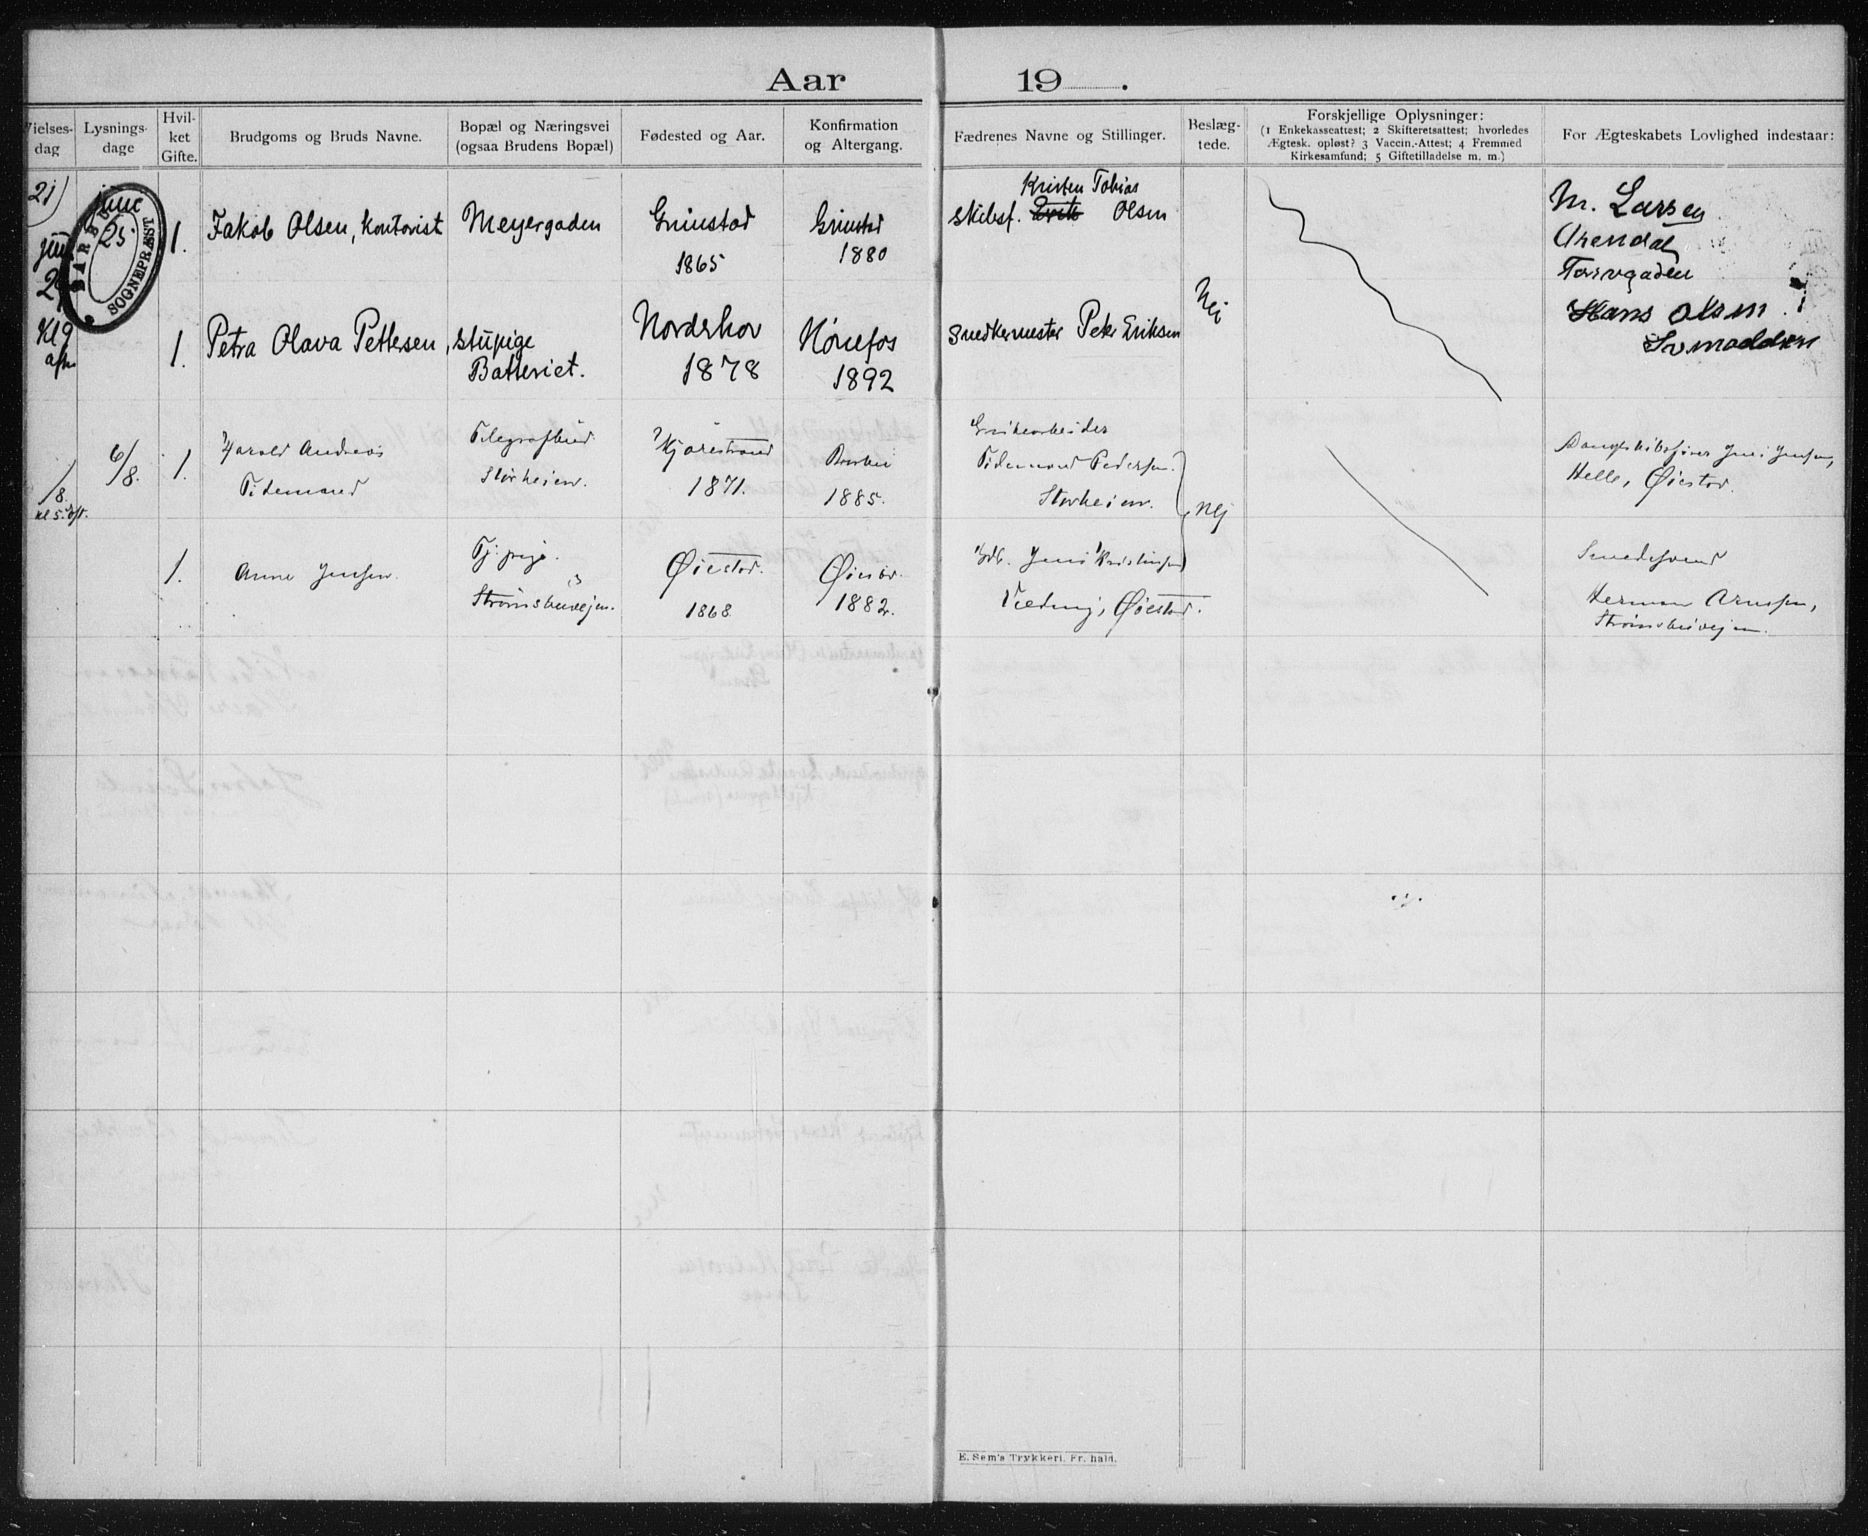 Aar 19 .
Vielses-
dag
Lysnings-
dage
Hvil-
ket
Gifte.
Brudgoms og Bruds Navne.
Bopæl og Næringsvei
(ogsaa Brudens Bopæl)
Fødested og Aar.
Konfirmation
og Altergang.
Fædrenes Navne og Stillinger.
Beslæg-
tede.
Forskjellige Oplysninger:
(1 Enkekasseattest; 2 Skifteretsattest; hvorledes
Ægtesk. opløst? 3 Vaccin.-Attest; 4 Fremmed
Kirkesamfund; 5 Giftetilladelse m. m.)
For Ægteskabets Lovlighed indestaar:
BARBU
SOGNEPRÆST
25.
Kl 9
aftn
1.
Jakob Olsen, Kontorist
Meyergaden
Grimstad
1865
Grimstad
1880
Kristen Tobias
Skibsf. Erik Olsen
M. Larsen
Arendal
Torvgaden
1.
Petra Olava Pettersen,
stupige
Batteriet.
Norderhov
1878
Hønefos
1892
Snedkermester Peter Eriksen
Nei
Hans Olsen
1/8.
kl 5. Eft.
6/8.
1.
Harald Andreas
Tidemand
Telegrafbud
Storheien.
1871.
Barbu
1885.
Grubearbeider
Tidemand Pedersen.
Storheien.
Nej
Dampskibsfører Jens Jensen,
Helle, Øiestad.
1.
Anne Jensen.
Tj. pige.
Strømsbuvejen.
Øiestad.
1868
Øiestad.
1882.
Gdb. Jens Kristensen
Øiestad.
Smedesvend
Herman Arnesen,
Strømsbuvejen.
E. Sem's Trykkeri, Fr. hald.